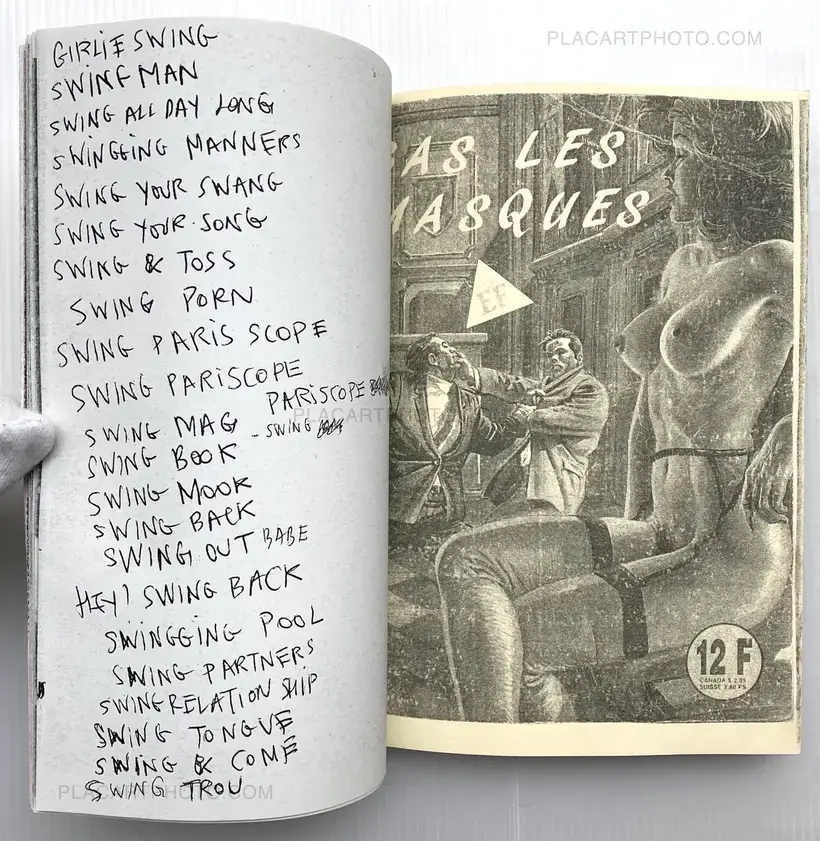 GIRLIE SWING
SWING MAN
SWING ALL DAY LONG
SWINGGING MANNERS
SWING YOUR SWANG
SWING YOUR SONG
SWING & TOSS
SWING PORN
SWING PARIS SCOPE
SWING PARISCOPE
PARISCOPE
SWING MAG - SWING
SWING BOOK
SWING MOOK
SWING BACK
SWING OUT BABE
HEY! SWING BACK
SWINGGING POOL
SWING PARTNERS
SWING RELATION SHIP
SWING TONGUE
SWING & COME
SWING TROU
PLACARTPHOTO.COM
BAS LES
MASQUES
EF
12 F
CANADA $ 2.95
PLACARTPHOTO.COM
PLACARTPHOTO.COM